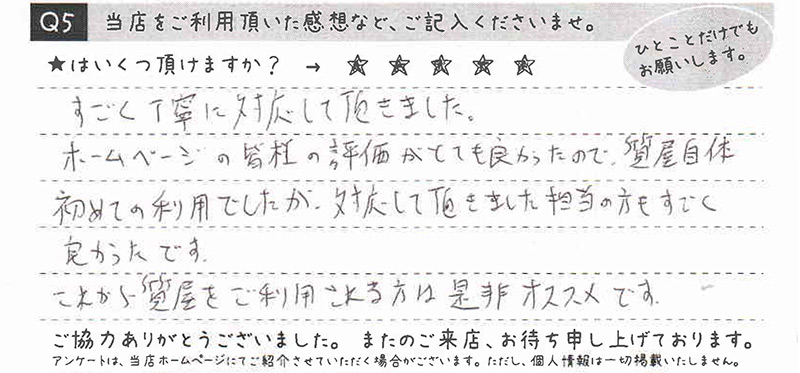 Q5 当店をご利用頂いた感想など、ご記入くださいませ。
ひとことだけでも
お願いします。
★はいくつ頂けますか? → ☆ ☆ ☆ ☆ ☆
すごく丁寧に対応して頂きました。
ホームページの皆様の評価がとても良かったので、質屋自体
初めての利用でしたが、対応して頂きました担当の方もすごく
良かったです。
これから質屋をご利用される方は是非オススメです。
ご協力ありがとうございました。 またのご来店、お待ち申し上げております。
アンケートは、当店ホームページにてご紹介させていただく場合がございます。ただし、個人情報は一切掲載いたしません。